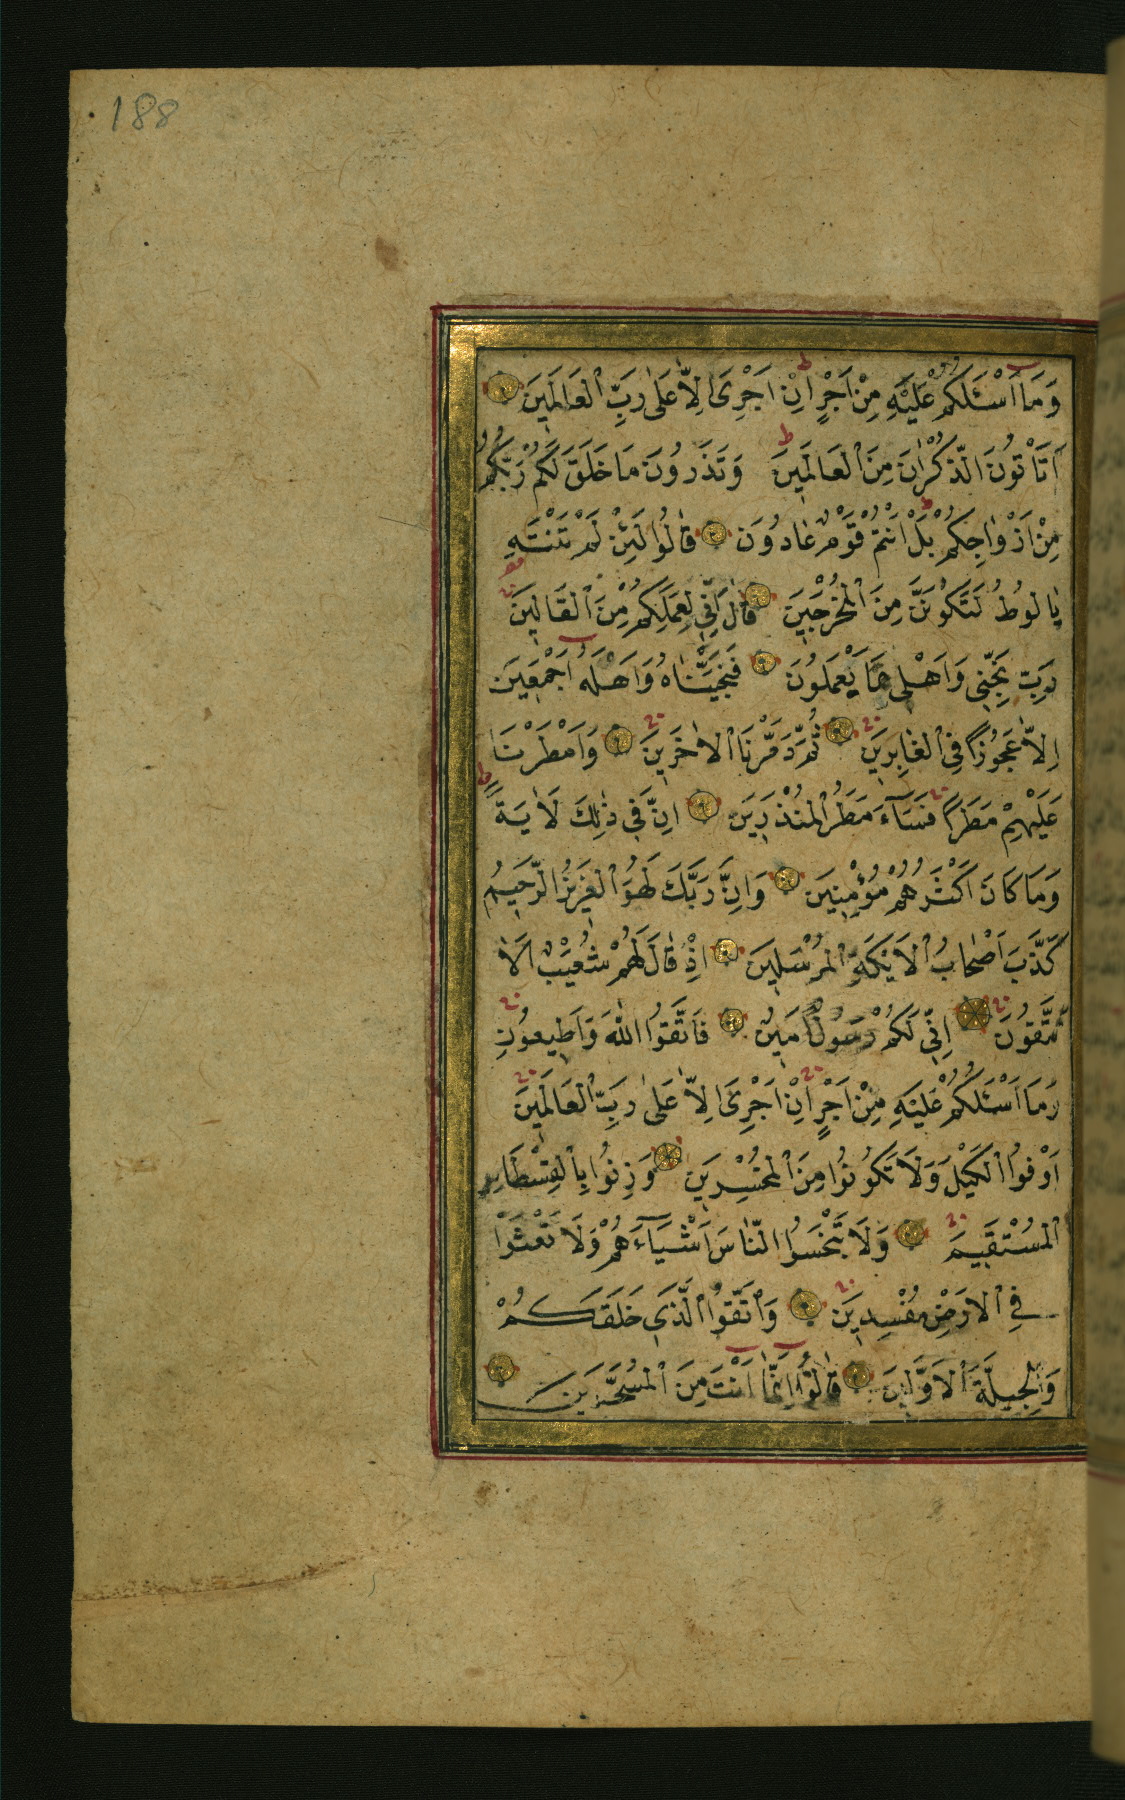 188
وَمَا اَسْـَٔلُكُمْ عَلَيْهِ مِنْ اَجْرٍ اِنْ اَجْرِىَ اِلَّا عَلٰى رَبِّ الْعَالَمِينَ
اَتَأْتُونَ الذُّكْرَانَ مِنَ الْعَالَمِينَ وَتَذَرُونَ مَا خَلَقَ لَكُمْ رَبُّكُمْ
مِنْ اَزْوَاجِكُمْ بَلْ اَنْتُمْ قَوْمٌ عَادُونَ قَالُوا لَئِنْ لَمْ تَنْتَهِ
يَا لُوطُ لَتَكُونَنَّ مِنَ الْمُخْرَجِينَ قَالَ اِنِّى لِعَمَلِكُمْ مِنَ الْقَالِينَ
رَبِّ نَجِّنِى وَاَهْلِى مِمَّا يَعْمَلُونَ فَنَجَّيْنَاهُ وَاَهْلَهُ اَجْمَعِينَ
اِلَّا عَجُوزًا فِى الْغَابِرِينَ ثُمَّ دَمَّرْنَا الْاٰخَرِينَ وَاَمْطَرْنَا
عَلَيْهِمْ مَطَرًا فَسَآءَ مَطَرُ الْمُنْذَرِينَ اِنَّ فِى ذٰلِكَ لَاٰيَةً
وَمَا كَانَ اَكْثَرُهُمْ مُؤْمِنِينَ وَاِنَّ رَبَّكَ لَهُوَ الْعَزِيزُ الرَّحِيمُ
كَذَّبَ اَصْحَابُ الْاَيْكَةِ الْمُرْسَلِينَ اِذْ قَالَ لَهُمْ شُعَيْبٌ اَلَا
تَتَّقُونَ اِنِّى لَكُمْ رَسُولٌ اَمِينٌ فَاتَّقُوا اللّٰهَ وَاَطِيعُونِ
وَمَا اَسْـَٔلُكُمْ عَلَيْهِ مِنْ اَجْرٍ اِنْ اَجْرِىَ اِلَّا عَلٰى رَبِّ الْعَالَمِينَ
اَوْفُوا الْكَيْلَ وَلَا تَكُونُوا مِنَ الْمُخْسِرِينَ وَزِنُوا بِالْقِسْطَاسِ
الْمُسْتَقِيمِ وَلَا تَبْخَسُوا النَّاسَ اَشْيَآءَهُمْ وَلَا تَعْثَوْا
فِى الْاَرْضِ مُفْسِدِينَ وَاتَّقُوا الَّذِى خَلَقَكُمْ
وَالْجِبِلَّةَ الْاَوَّلِينَ قَالُوا اِنَّمَا اَنْتَ مِنَ الْمُسَحَّرِينَ